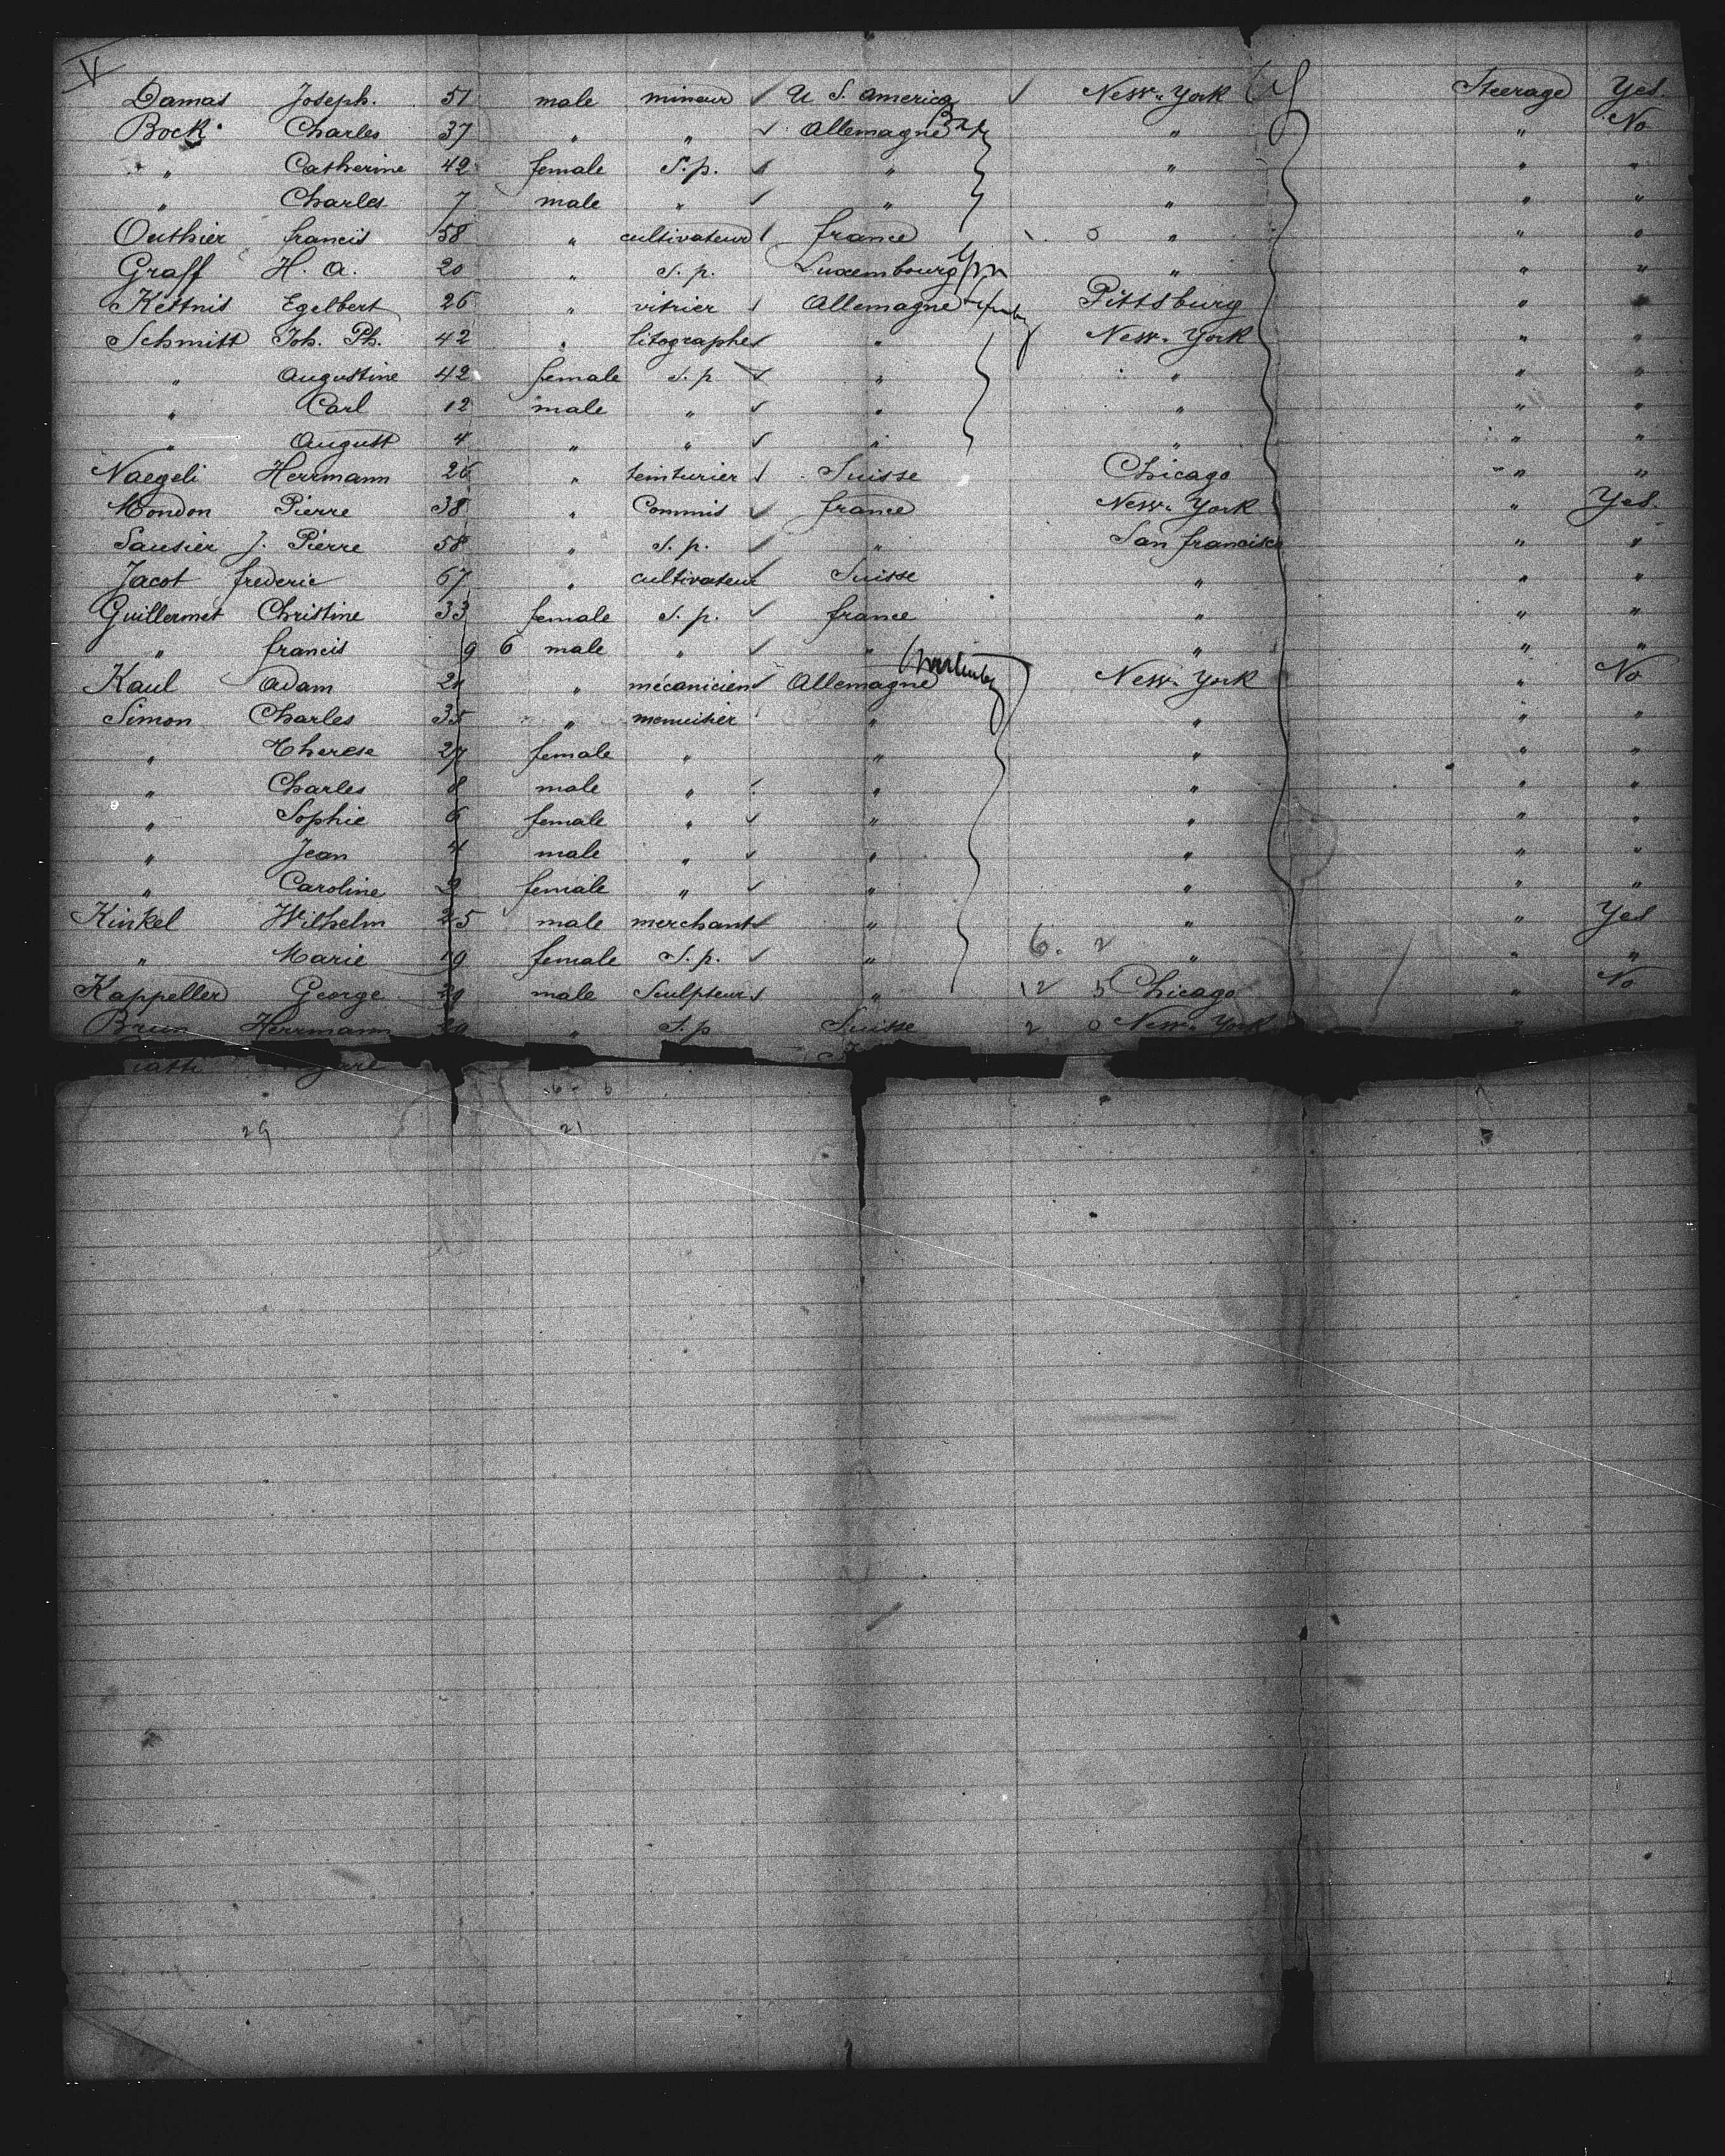 V
Damas Joseph. 51 male mineur ✓ U S. America ✓ New-York Steerage Yes.
Bock Charles 37 " " ✓ Allemagne " " No
" Catherine 42 female S.p. ✓ " " " "
" Charles 7 male " ✓ " " " "
Outhier francis 58 " cultivateur france 0 " " "
Graff H. A. 20 " S. p. Luxembourg " " "
Kettnis Egelbert 26 " vitrier Allemagne Pittsburg " "
Schmitt Joh. Ph. 42 " litographe ✓ " New-York " "
" Augustine 42 female S. p ✓ " " " "
" Carl 12 male " ✓ " " " "
" August 4 " " ✓ " " " "
Naegeli Herrmann 26 " teinturier Suisse Chicago " "
Mondon Pierre 38 " Commis ✓ france New-York " Yes.
Sausier J. Pierre 58 " S. p. ✓ " San francisco " "
Jacot frederic 67 " cultivateur ✓ Suisse " " "
Guillermet Christine 33 female S. p. ✓ france " " "
" francis 9 6 male " ✓ " " " "
Kaul Adam " mécanicien ✓ Allemagne New-York " No
Simon Charles 35 " menuisier " " " "
" Therese 27 female " " " " "
" Charles 8 male " " " " "
" Sophie 6 female " ✓ " " " "
" Jean 4 male " ✓ " " " "
" Caroline female " ✓ " " " "
Kinkel Wilhelm 25 male merchant ✓ " " " Yes
" Marie 19 female S. p. ✓ " 6. 2 " " "
Kappeller George 29 male Sculpteur " 12 5 Chicago " No
Brun Herrmann 20 " S. p Suisse 2 0 New-York "
29 21